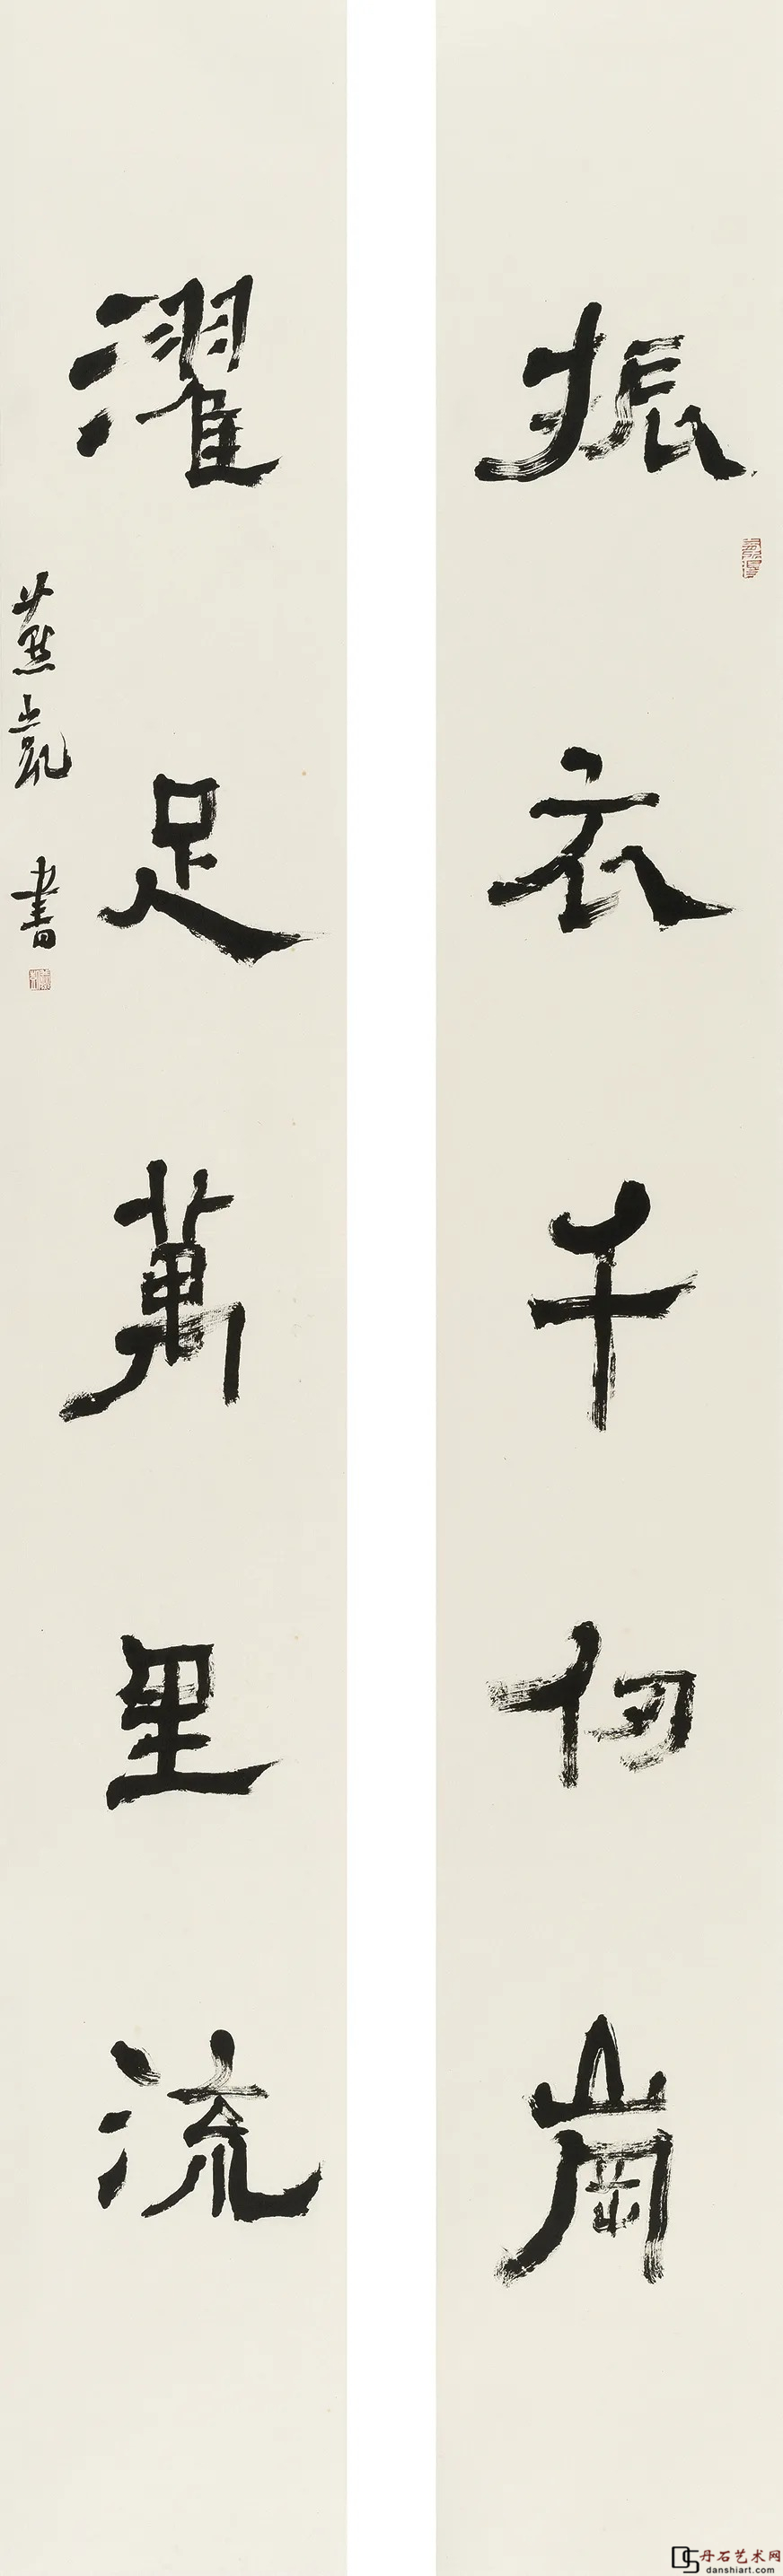 振衣千仞崗
濯足萬里流
燕凱書
丹石艺术网
danshiart.com